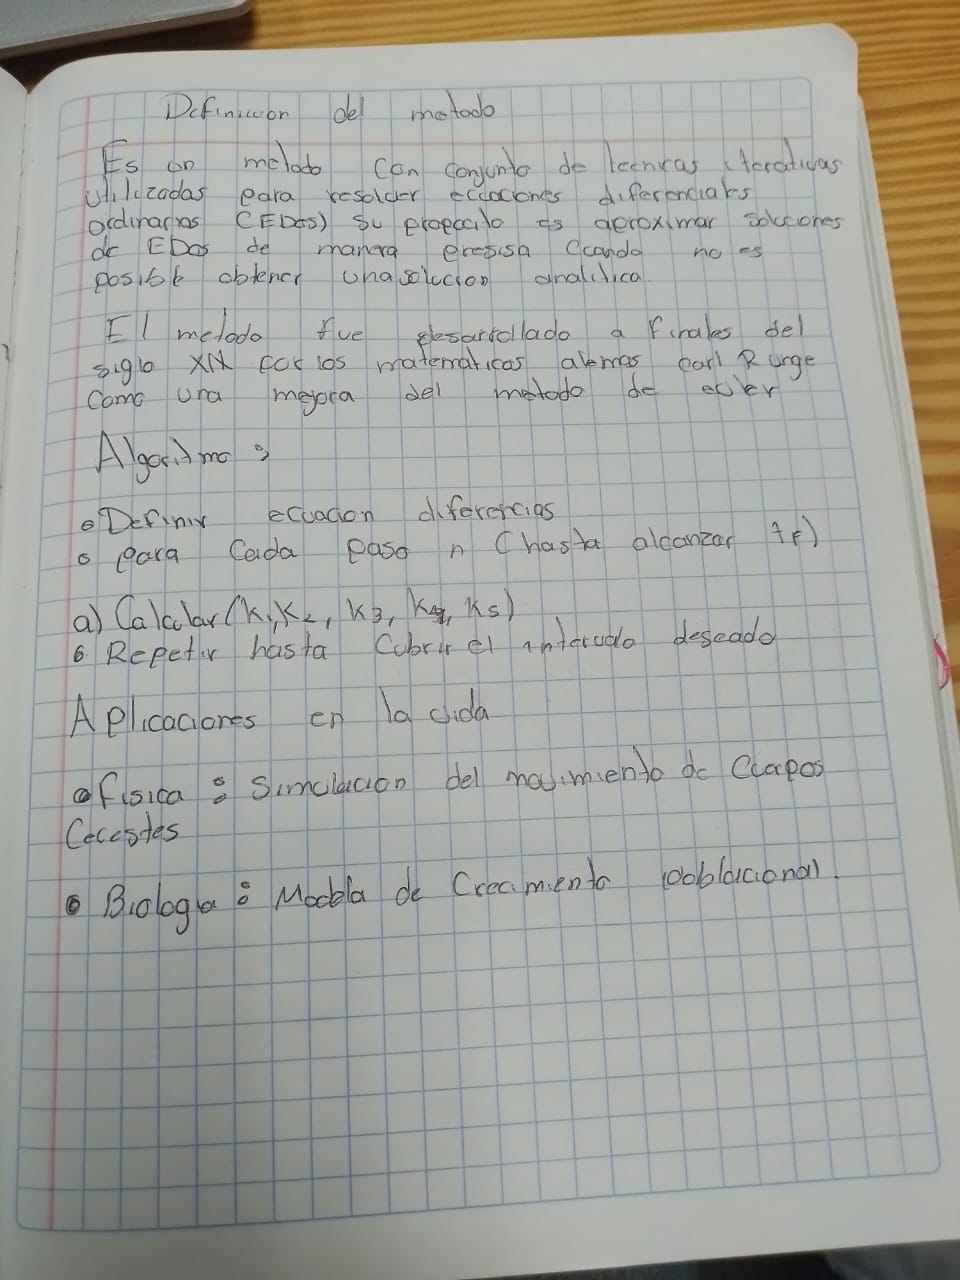 Definicion del metodo
Es un metodo con conjunto de tecnicas iterativas
utilizadas para resolder ecuaciones diferenciales
ordinarias (EDOs) su propocito es aproximar soluciones
de EDOs de manera presisa cuando no es
posible obtener una solucion analitica
El metodo fue desarrollado a finales del
siglo por los matematicos alemas carl Runge
Como una mejora del metodo de euler
Algoritmo:
Definir ecuacion diferencias
para Cada paso n (hasta alcanzar tf)
a) Calcular (K1, K2, K3, K4, K5)
6 Repetir hasta Cubrir el intervalo deseado
Aplicaciones en la vida
fisica: Simulacion del movimiento de Cuerpos
Cecestes
Biologia: de Crecimiento poblacional.